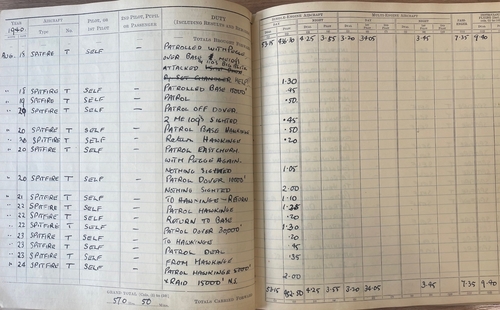 YEAR
1940
AIRCRAFT
Type
No.
PILOT, OR
1ST PILOT
2ND PILOT, PUPIL
OR PASSENGER
DUTY
(INCLUDING RESULTS AND REMARKS)
MULTI-ENGINE AIRCRAFT
TOTALS BROUGHT FORWARD
53.15 4.25 3.55 3.20 34.05 3.45 7.35 9.40
AUG. 18 SPITFIRE T SELF — PATROLLED WITH PUDGE
OVER BASE
ATTACKED
HELP 1.30
" 18 SPITFIRE T SELF — PATROLLED BASE 15000' .45
" 19 SPITFIRE T SELF — PATROL .50
" 20 SPITFIRE T SELF — PATROL OFF DOVER.
2 ME 109's SIGHTED .45
" 20 SPITFIRE T SELF — PATROL BASE HAWKINGE .50
" 20 SPITFIRE T SELF — RETURN HAWKINGE .20
" 20 SPITFIRE T SELF — PATROL EASTCHURCH
WITH PUDGE AGAIN.
NOTHING SIGHTED 1.05
" 20 SPITFIRE T SELF — PATROL DOVER 10000'
NOTHING SIGHTED 2.00
" 21 SPITFIRE T SELF — TO HAWKINGE - RETURN 1.10
" 22 SPITFIRE T SELF — PATROL HAWKINGE
" 22 SPITFIRE T SELF — RETURN TO BASE .20
" 22 SPITFIRE T SELF — PATROL DOVER 30000' 1.30
" 23 SPITFIRE T SELF — TO HAWKINGE .20
" 23 SPITFIRE T SELF — PATROL DEAL .45
" 23 SPITFIRE T SELF — FROM HAWKINGE .35
" 24 SPITFIRE T SELF — PATROL HAWKINGE 5000'
& RAID 15000' N.S. 2.00
GRAND TOTAL
570 Hrs. 50 Mins.
TOTALS CARRIED FORWARD
53.15 4.25 3.55 3.20 34.05 3.45 7.35 9.40